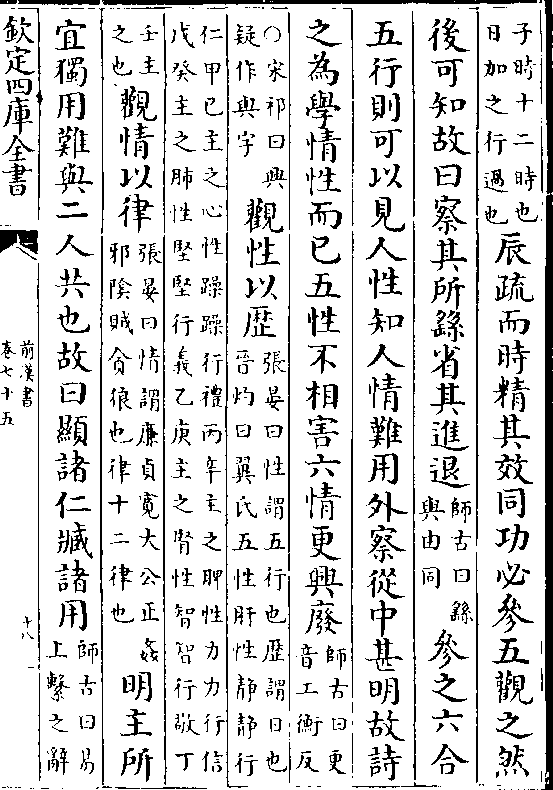 子時十二時也
日加之行過也
辰疏而時精其效同功必參五觀之然
後可知故曰察其所繇省其進退
師古曰繇
與由同
參之六合
五行則可以見人性知人情難用外察從中甚明故詩
之為學情性而已五性不相害六情更興廢
師古曰更
音工衡反
○宋祁曰興
疑作與字
觀性以歴
張晏曰性謂五行也歴謂日也
晉灼曰翼氏五性肝性静静行
仁甲已主之心性躁躁行禮丙辛主之脾性力力行信
戊癸主之肺性堅堅行義乙庚主之腎性智智行敬丁
壬主
之也
觀情以律
張晏曰情謂廉貞寛大公正姦
邪隂賊貪狼也律十二律也
明主所
宜獨用難與二人共也故曰顯諸仁臧諸用
師古曰易
上繫之辭
欽定四庫全書
前漢書
卷七十五
十八